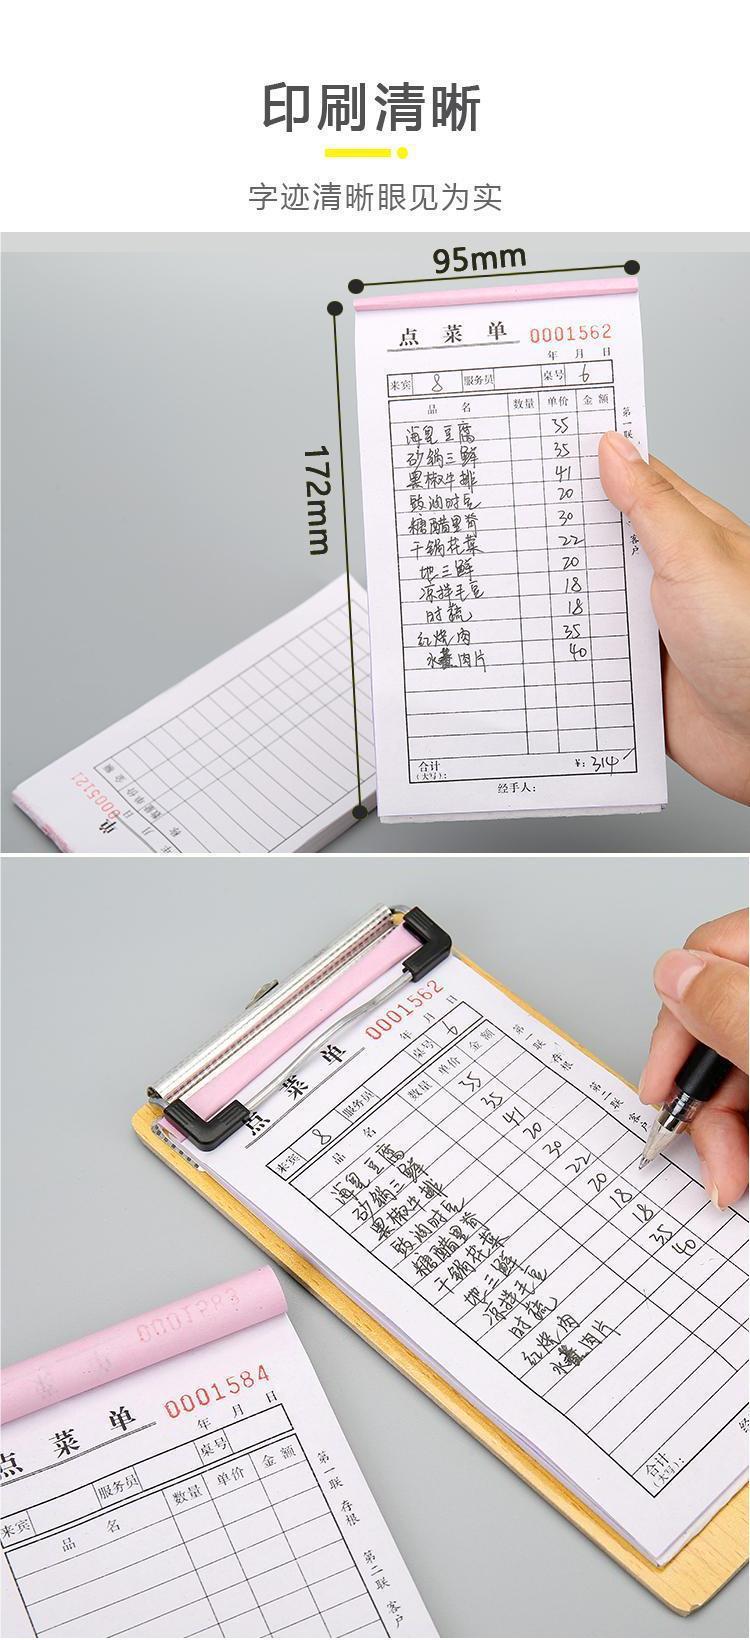 印刷清晰
字迹清晰眼见为实
95mm
172mm
点菜单 0001562
年 月 日
来宾 8 服务员 桌号 6
品名 数量 单价 金额
海皇豆腐 35
砂锅三鲜 35
黑椒牛排 41
豉油时豆 20
糖醋里脊 30
干锅花菜 22
地三鲜 20
凉拌毛豆 18
时蔬 18
红烧肉 35
水煮肉片 40
合计
(大写): ¥: 314
经手人:
第一联
客户
0005121
单
年 月 日
数量 单价 金额
点菜单 0001562
年 月 日
来宾 8 服务员 桌号 6
品名 数量 单价 金额
海皇豆腐 35
砂锅三鲜 35
黑椒牛排 41
豉油时豆 20
糖醋里脊 30
干锅花菜 22
地三鲜 20
凉拌毛豆 18
时蔬 18
红烧肉 35
水煮肉片 40
合计
(大写):
经
第一联 存根 第二联 客户
0001583
点菜单 0001584
年 月 日
来宾 服务员 桌号
品名 数量 单价 金额
第一联 存根 第二联 客户